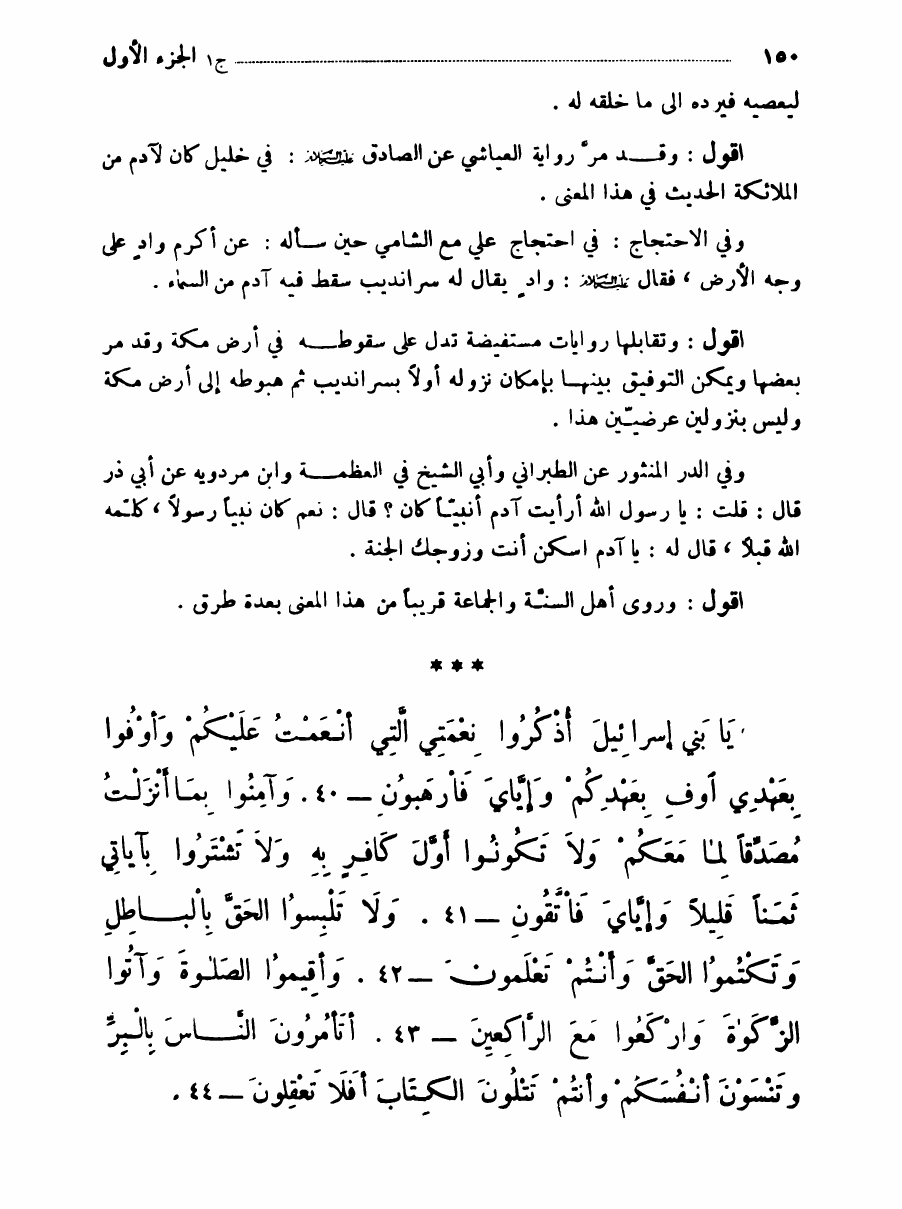 ١٥٠ ج١ الجزء الأول
ليعصيه فيرده الى ما خلقه له .
اقول : وقـــد مرّ رواية العياشي عن الصادق عليه السلام : في خليل كان لآدم من
الملائكة الحديث في هذا المعنى .
وفي الاحتجاج : في احتجاج علي مع الشامي حين سأله : عن أكرم وادٍ على
وجه الأرض ، فقال عليه السلام : وادٍ يقال له سرانديب سقط فيه آدم من السماء .
اقول : وتقابلها روايات مستفيضة تدل على سقوطـــه في أرض مكة وقد مر
بعضها ويمكن التوفيق بينهـا بإمكان نزوله أولاً بسرانديب ثم هبوطه إلى أرض مكة
وليس بنزولين عرضيّين هذا .
وفي الدر المنثور عن الطبراني وأبي الشيخ في العظمـــة وابن مردويه عن أبي ذر
قال : قلت : يا رسول الله أرأيت آدم أنبيّـاً كان ؟ قال : نعم كان نبياً رسولاً ، كلّمه
الله قبلاً ، قال له : يا آدم اسكن أنت وزوجك الجنة .
اقول : وروى أهل السنّـة والجماعة قريباً من هذا المعنى بعدة طرق .
* * *
يَا بَني إسرائِيلَ أذْكُرُوا نِعْمَتِي الَّتِي أنْعَمْتُ عَلَيْكُمْ وَأوْفُوا
بِعَهْدِي أوفِ بِعَهْدِكُمْ وَإيَّايَ فَأرْهَبونِ – ٤٠ . وَآمِنُوا بِمَا أنْزَلْتُ
مُصَدِّقاً لِمَا مَعَكُمْ وَلاَ تَكُونُوا أوَّلَ كَافِرٍ بِهِ وَلاَ تَشْتَرُوا بِآيَاتِي
ثَمَناً قَلِيلاً وَإيَّايَ فَأتَّقُونِ – ٤١ . وَلَا تَلْبِسوُا الحَقَّ بِالْبـــاطِلِ
وَتَكْتُموُا الحَقَّ وَأنْتُمْ تَعْلَمونَ – ٤٢ . وَأقيموُا الصَّلوةَ وَآتُوا
الزَّكَوٰةَ وَارْكَعُوا مَعَ الرَّاكِعِينَ – ٤٣ . أتَأمُرُونَ النَّـــاسَ بِالْبِرِّ
وتَنْسَوْنَ أنْفُسَكُمْ وأنتُمْ تَتْلُونَ الكِتَابَ أفَلَا تَعْقِلونَ – ٤٤ .